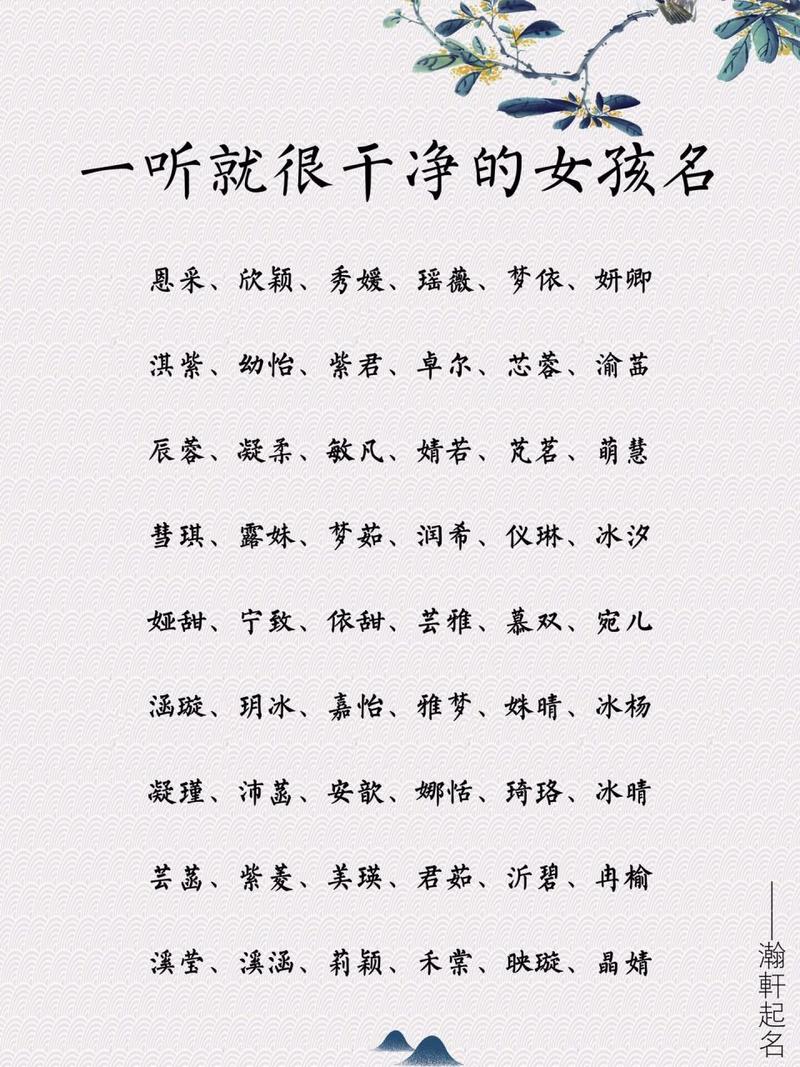 一听就很干净的女孩名
恩采、欣颖、秀媛、瑶薇、梦依、妍卿
淇紫、幼怡、紫君、卓尔、芯蓉、渝茁
辰蓉、凝柔、敏凡、婧若、芃茗、萌慧
彗琪、露妹、梦茹、润希、仪琳、冰汐
娅甜、宁致、依甜、芸雅、慕双、宛儿
涵璇、玥冰、嘉怡、雅梦、姝晴、冰杨
凝瑾、沛菡、安歆、娜恬、琦珞、冰晴
芸菡、紫菱、美瑛、君茹、沂碧、冉榆
溪莹、溪涵、莉颖、禾棠、映璇、晶婧
——瀚軒起名